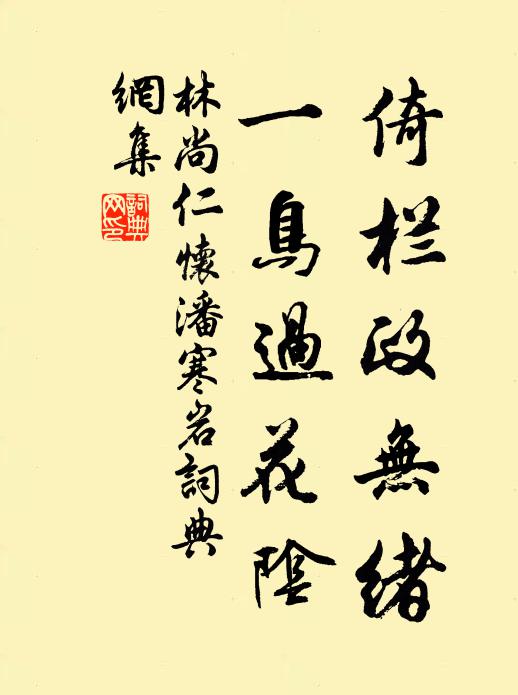 倚栏政無緒
一鳥過花陰
林尚仁懷潘寒岩詞典
網集
詞典网印